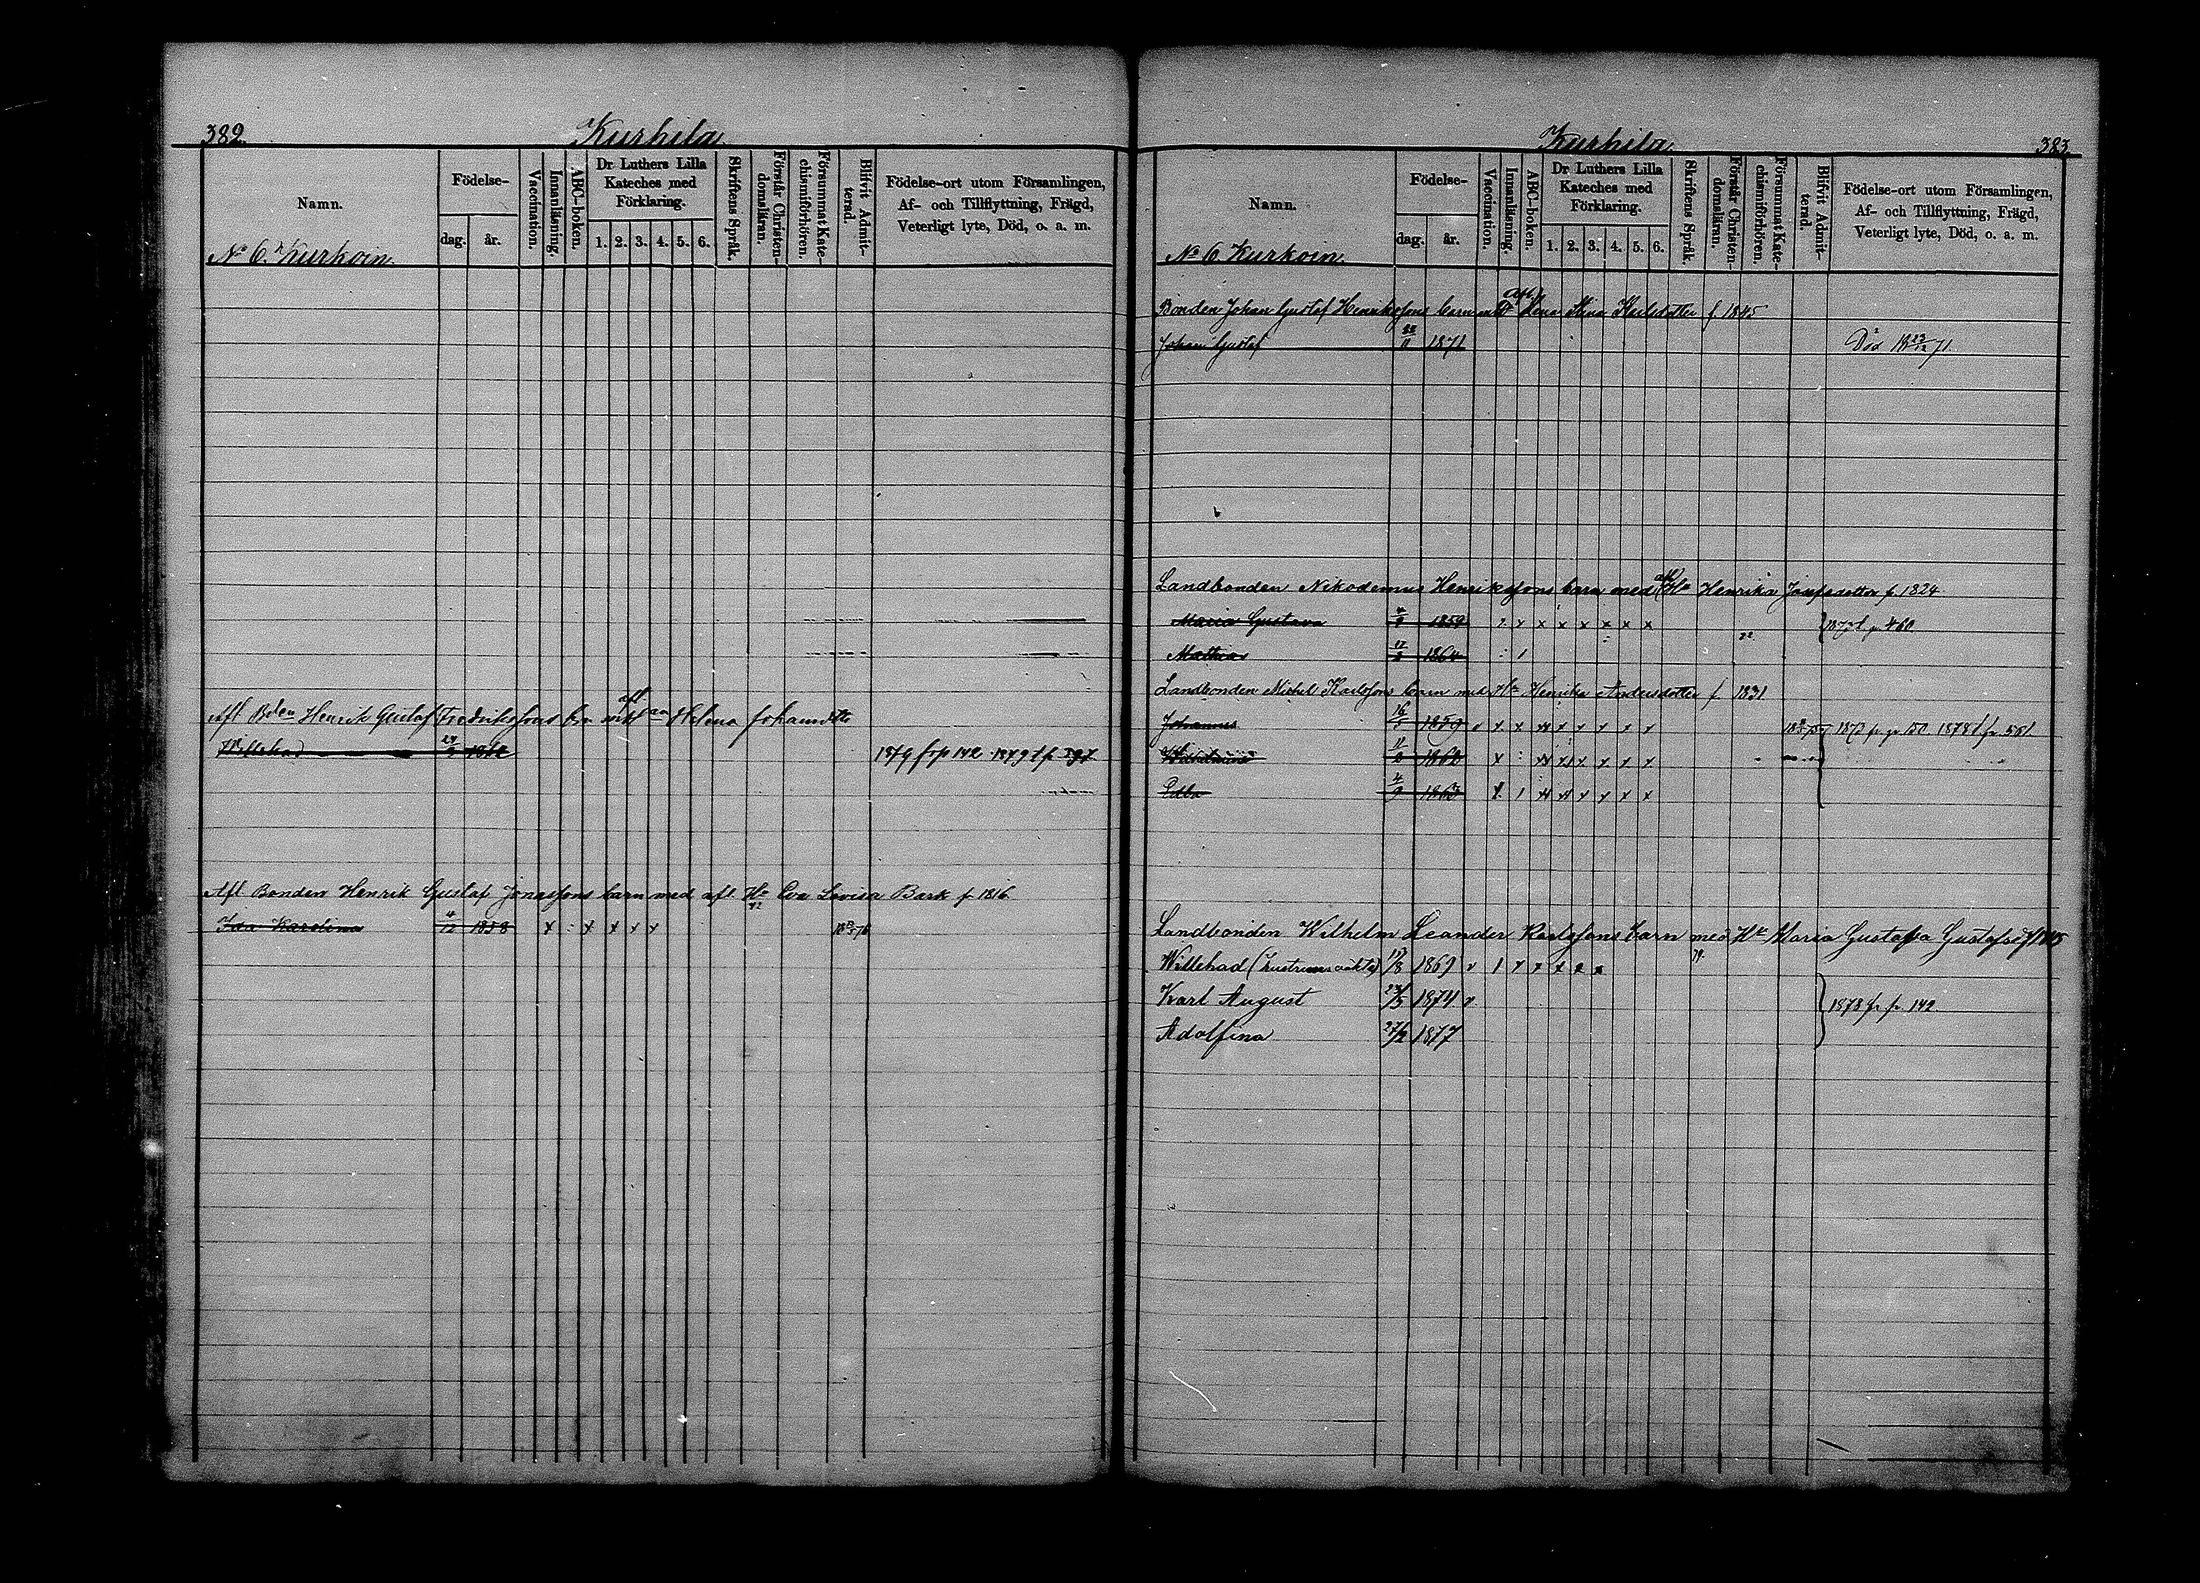 382.
Kurhila.
Namn.
Födelse-
dag. år.
Vaccination.
Innanläsning.
ABC-boken.
Dr Luthers Lilla Kateches med Förklaring.
1. 2. 3. 4. 5. 6.
Skriftens Språk.
Förstår Christendomsläran.
Försummat Katechismiförhören.
Blifvit Admitterad.
Födelse-ort utom Församlingen, Af- och Tillflyttning, Frägd, Veterligt lyte, Död, o. a. m.
No 6. Kurkoin.
Afl. Bden Henrik Gustaf Fredriksfons bn m afl Helena Johansdtr
Willehad 1879 fr p 142 1879 t p
Afl. Bonden Henrik Gustaf Jonasfons barn med afl. Ha Eva Lovisa Bark f 1816.
Ida Karolina 4/12 1858 x x x x x
Kurhila.
383.
Namn.
Födelse-
dag. år.
Vaccination.
Innanläsning.
ABC-boken.
Dr Luthers Lilla Kateches med Förklaring.
1. 2. 3. 4. 5. 6.
Skriftens Språk.
Förstår Christendomsläran.
Försummat Katechismiförhören.
Blifvit Admitterad.
Födelse-ort utom Församlingen, Af- och Tillflyttning, Frägd, Veterligt lyte, Död, o. a. m.
No 6 Kurkoin.
Bonden Johan Gustaf Henriksfons barn m afl Lena Stina Karlsdotter f. 1845
Johan Gustaf 22/11 1871 Död 18 23/12 71.
Landbonden Nikodemus Henriksfons barn med afl Ha Henrika Josefsdotter f. 1824
Maria Gustava 1859 x x x x x x x p 460
Mathias 1864
Landbonden Michel Karlsfons barn med Ha Henrika Andersdotter f. 1831
Johannes 16/5 1859 v x x x x x x x x 1873 fr p 150 1878 t p 551
1862 x x x x x x x
Edla 4/9 1863 x x x x x x
Landbonden Wilhelm Leander Karlsfons barn med Ha Maria Gustafva
Willehad 1869 v
Karl August 23/5 1874 v 1878 fr p 142.
Adolfina 27/2 1877